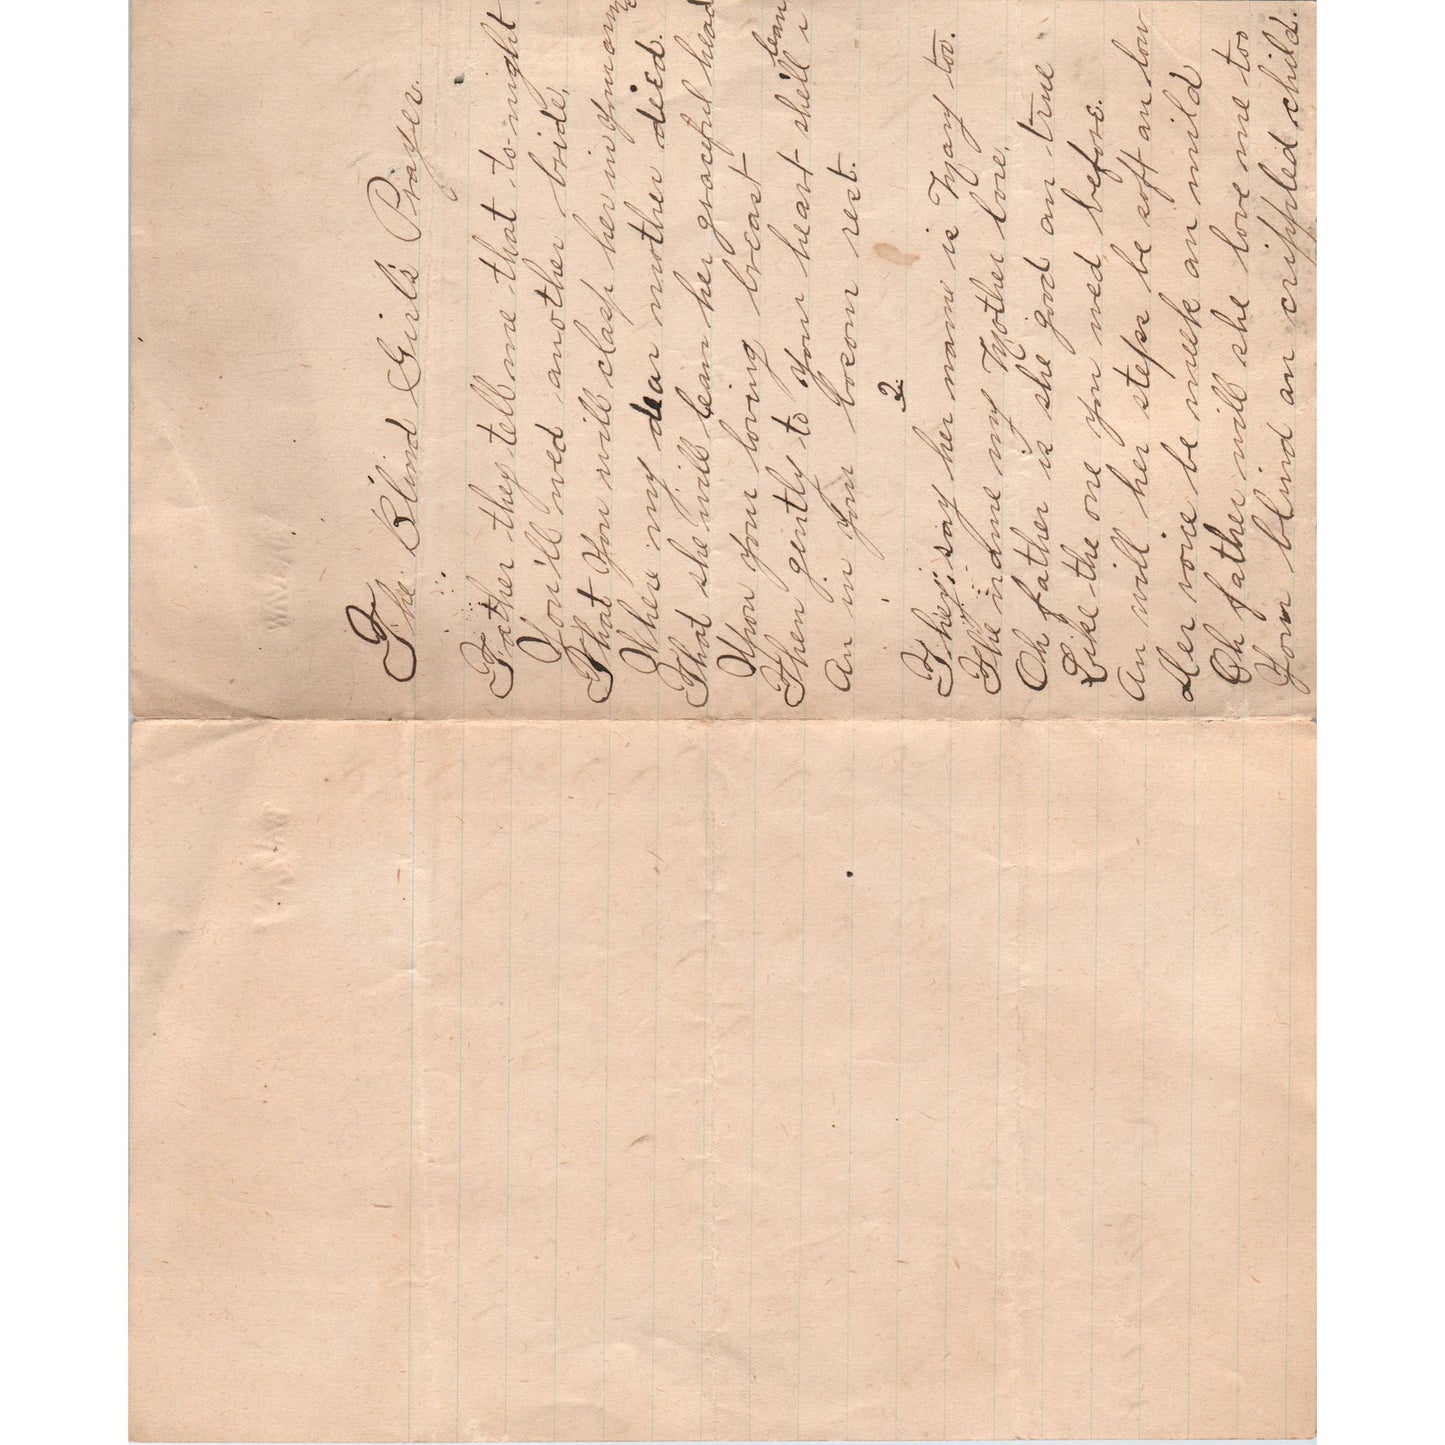 The Blind Girl's Prayer.
Father they tell me that to-night
You'll wed another bride,
That You will clasp her in your arms
Where my dear mother died.
That she will lean her graceful head
Upon your loving breast
Then gently to your heart shell
lean
An in your bosom rest.
2
They say her name is Mary too.
The name my Mother bore.
Oh father is she good an true
Like the one you wed before.
An will her steps be soft an low
Her voice be meek an mild
Oh father will she love me too
Your blind an crippled child.